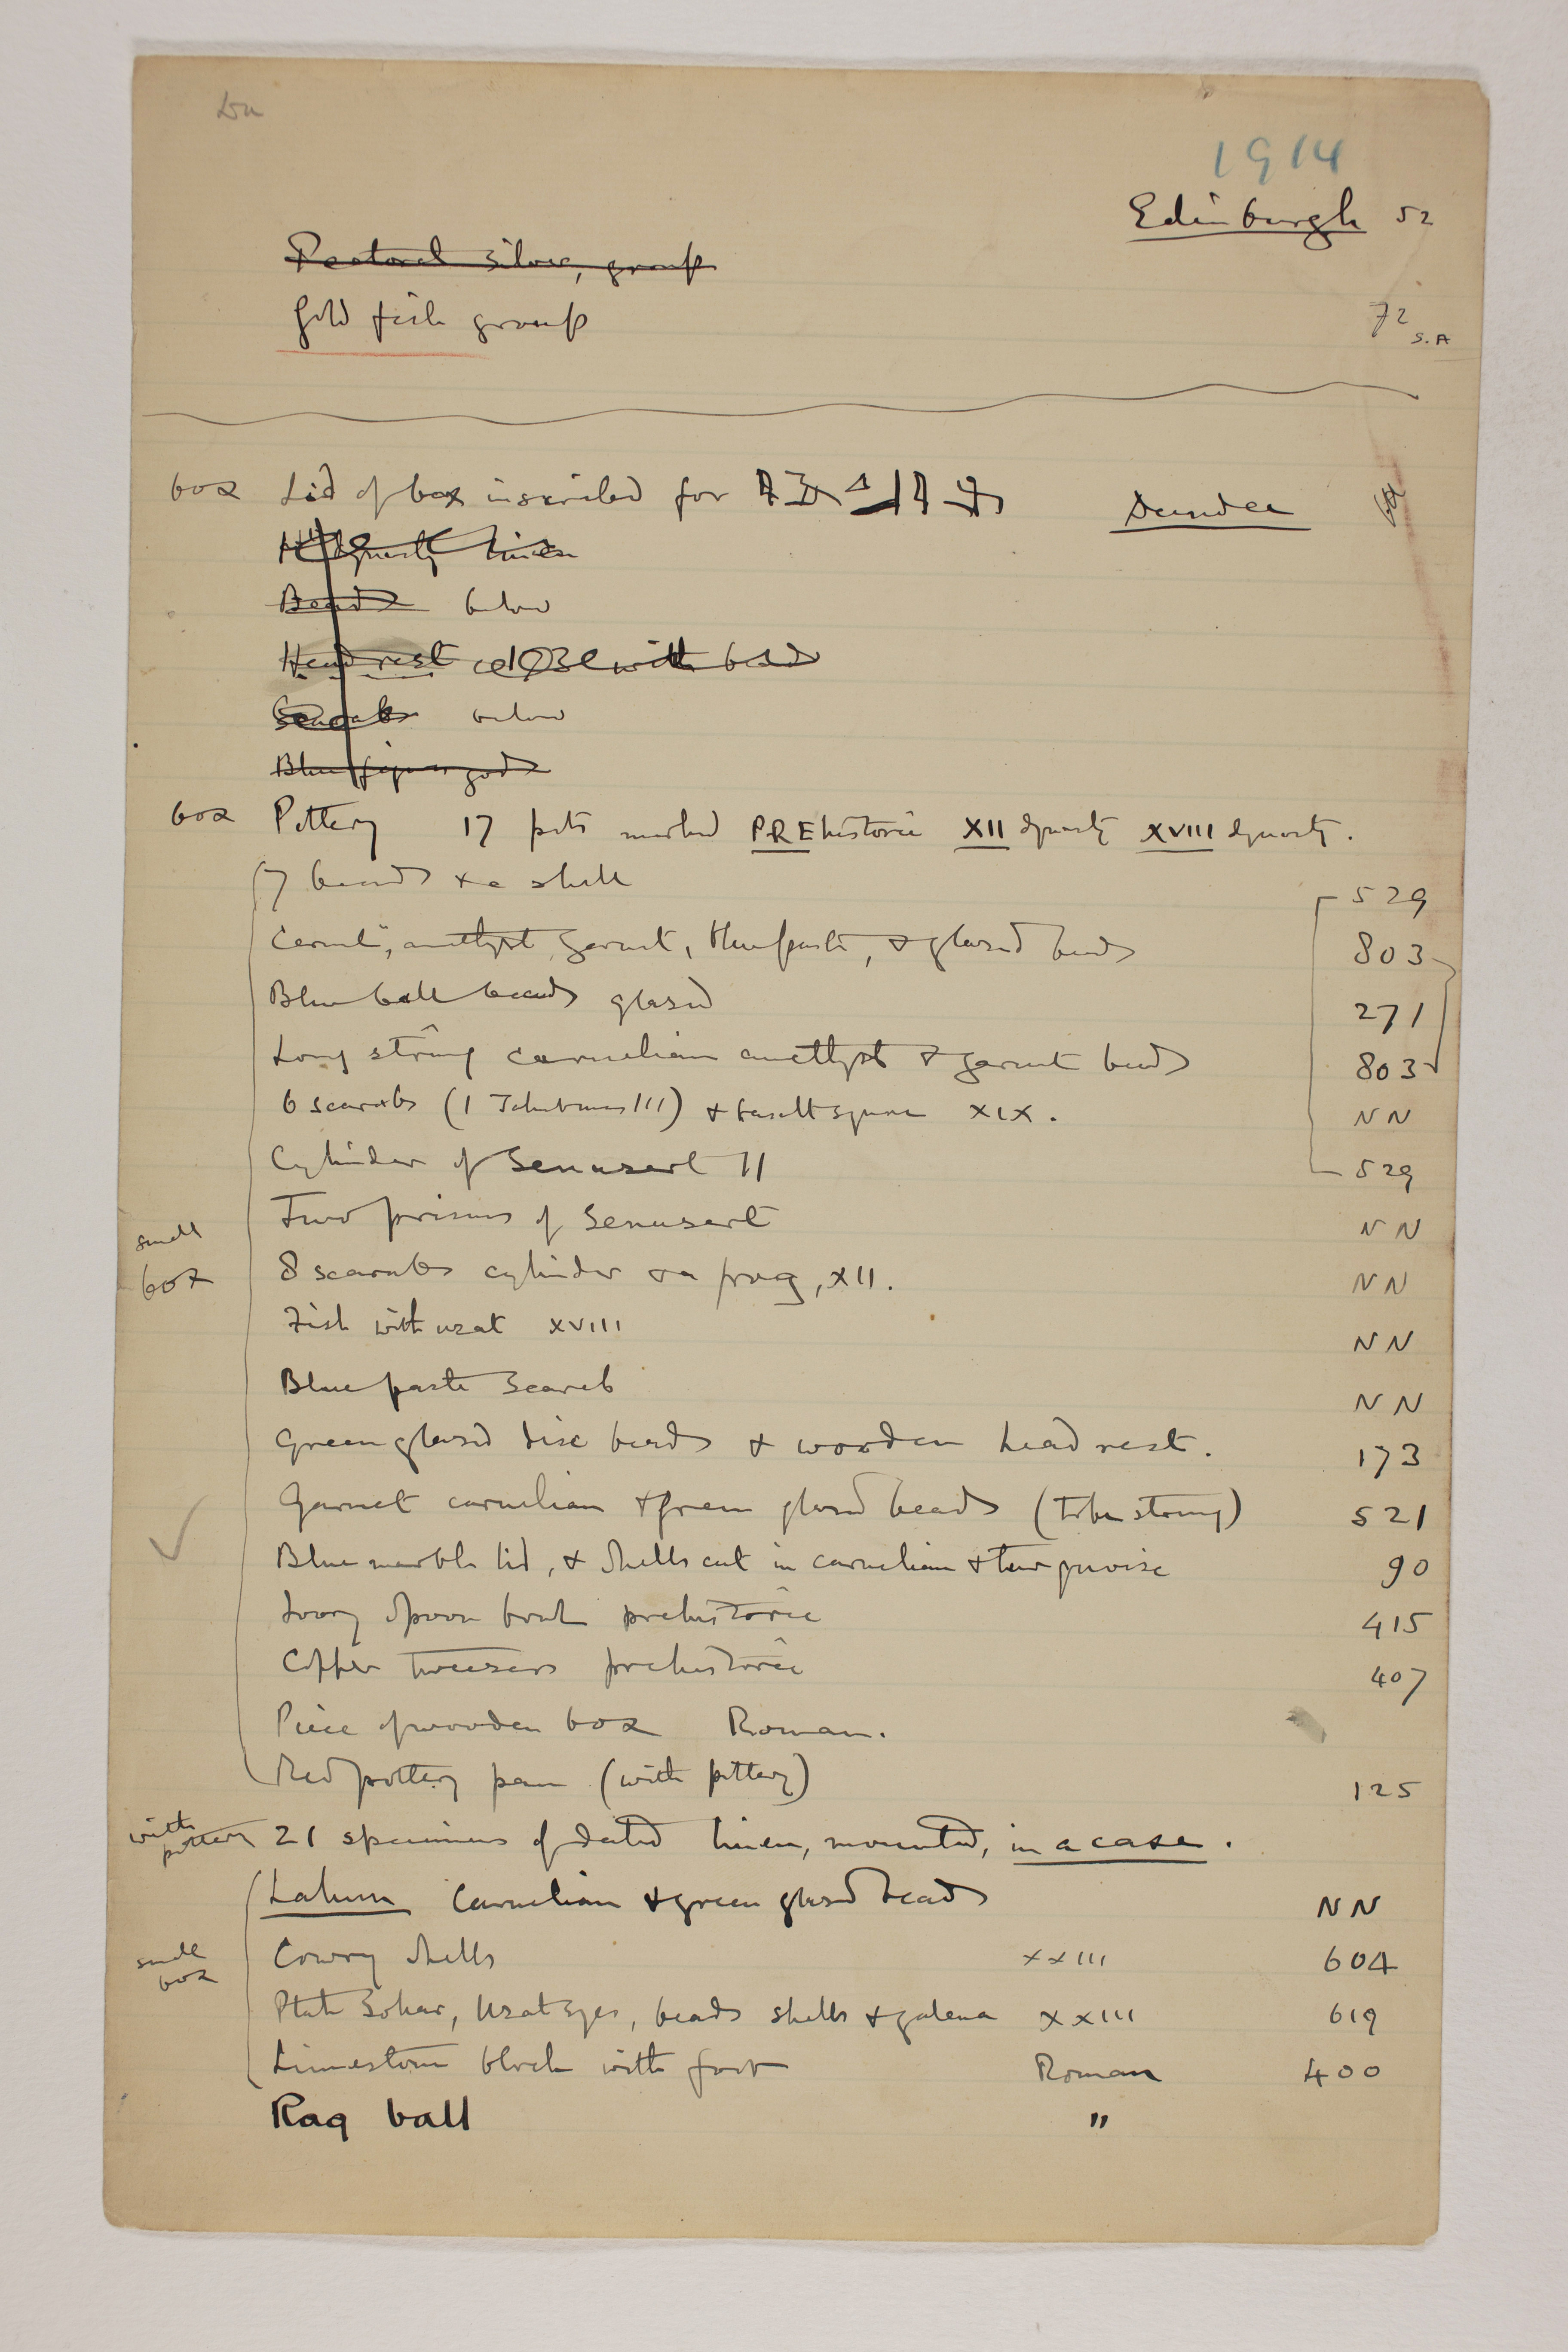 1914
Edinburgh 52
Pectoral silver, group
Gold fish group 72 S.A
box Lid of box inscribed for Dundee
XII dynasty linen
Beads below
Head rest with beads
Scarabs below
Blue figures gods
box Pottery 17 pots marked PREhistoric XII dynasty XVIII dynasty.
7 beads & a shell 529
Carnel:, amethyst, garnet, blue paste, & glazed beads 803
Blue ball beads glazed 271
Long string carnelian amethyst & garnet beads 803
6 scarabs (1 Tahutmes III) & basalt square XIX. NN
Cylinder of Senusert II 529
Two prisms of Senusert NN
small box 8 scarabs cylinder & a frog, XII. NN
Fish with uzat XVIII NN
Blue paste Scarab NN
Green glazed disc beads & wooden head rest. 173
Garnet carnelian & green glazed beads (to be strung) 521
Blue marble lid, & shells cut in carnelian & turquoise 90
Ivory spoon bowl prehistoric 415
Copper tweezers prehistoric 407
Piece of wooden box Roman.
Red pottery pan (with pottery) 125
with pottery 21 specimens of dated linen, mounted, in a case.
Lahun Carnelian & green glazed beads NN
small box Cowry shells XXIII 604
Ptah Sokar, Uzat eyes, beads shells & galena XXIII 619
Limestone block with foot Roman 400
Rag ball "